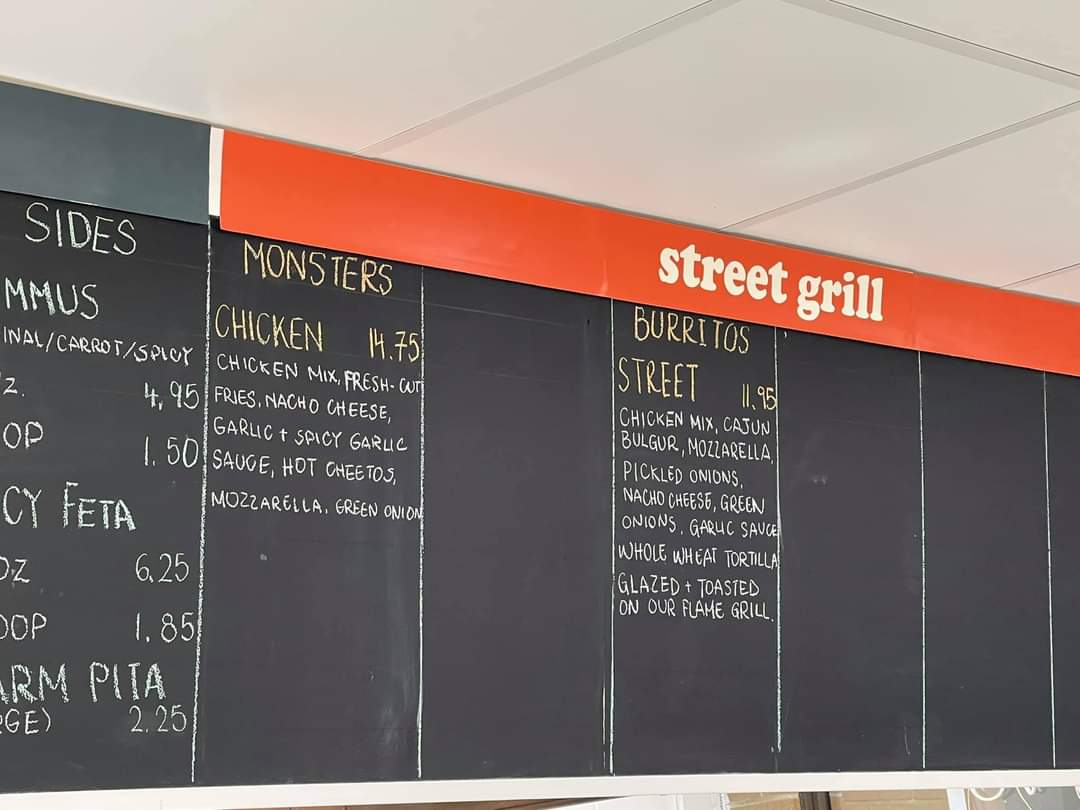 street grill
SIDES
MMUS
INAL/CARROT/SPICY
Z. 4.95
OP 1.50
CY FETA
OZ 6.25
OOP 1.85
ARM PITA
GE) 2.25
MONSTERS
CHICKEN 14.75
CHICKEN MIX, FRESH-CUT
FRIES, NACHO CHEESE,
GARLIC + SPICY GARLIC
SAUCE, HOT CHEETOS,
MOZZARELLA, GREEN ONION
BURRITOS
STREET 11.95
CHICKEN MIX, CAJUN
BULGUR, MOZZARELLA,
PICKLED ONIONS,
NACHO CHEESE, GREEN
ONIONS, GARLIC SAUCE
WHOLE WHEAT TORTILLA
GLAZED + TOASTED
ON OUR FLAME GRILL.